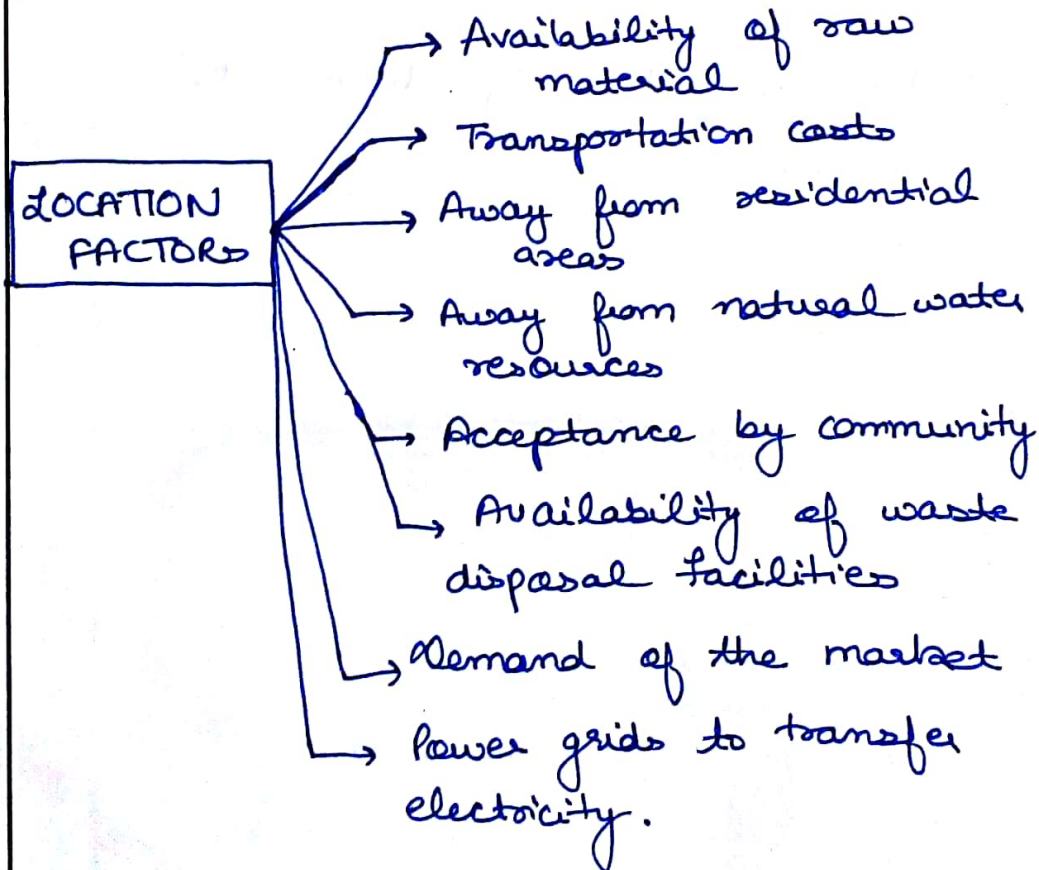 LOCATION
FACTORS
Availability of raw
material
Transportation costs
Away from residential
areas
Away from natural water
resources
Acceptance by community
Availability of waste
disposal facilities
Demand of the market
Power grids to transfer
electricity.